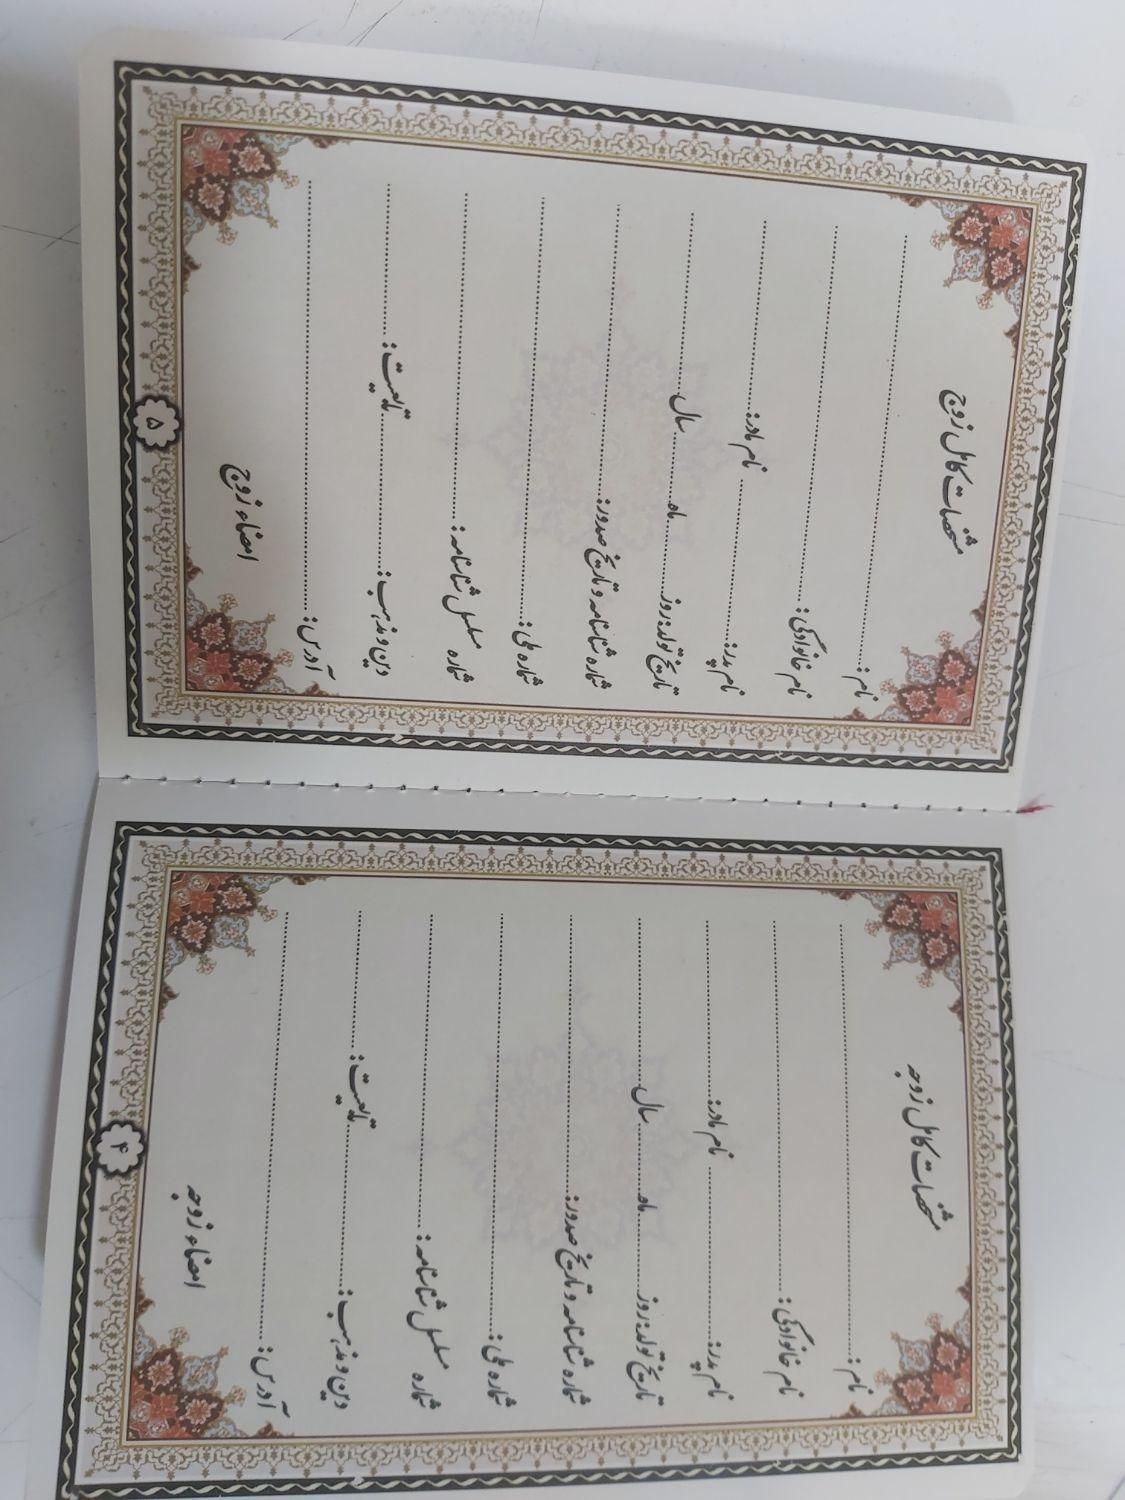 مشخصات کامل زوج
نام: ....................
نام خانوادگی: ....................
نام پدر: .......... نام مادر: ..........
تاریخ تولد: روز ..... ماه ..... سال .....
شماره شناسنامه و تاریخ صدور: ....................
شماره ملی: ....................
شماره مسلسل شناسنامه: ....................
دین و مذهب: .......... تابعیت: ..........
آدرس: ....................
امضاء زوج
۵
مشخصات کامل زوجه
نام: ....................
نام خانوادگی: ....................
نام پدر: .......... نام مادر: ..........
تاریخ تولد: روز ..... ماه ..... سال .....
شماره شناسنامه و تاریخ صدور: ....................
شماره ملی: ....................
شماره مسلسل شناسنامه: ....................
دین و مذهب: .......... تابعیت: ..........
آدرس: ....................
امضاء زوجه
۴